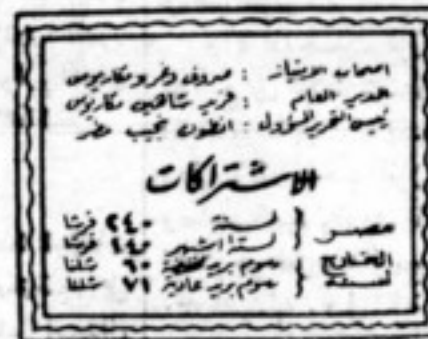 أصحاب الامتياز : صروف ونمر ومكاريوس
المدير العام : فريد شاهين مكاريوس
رئيس التحرير المسؤول : أنطون نجيب مطر
الاشتراكات
مصر { لسنة ٢٤٠ قرشا
لستة اشهر ١٤٥ قرشا
الخارج لسنة { رسوم بريد مخفضة ٦٠ شلنا
رسوم بريد عادية ٧١ شلنا